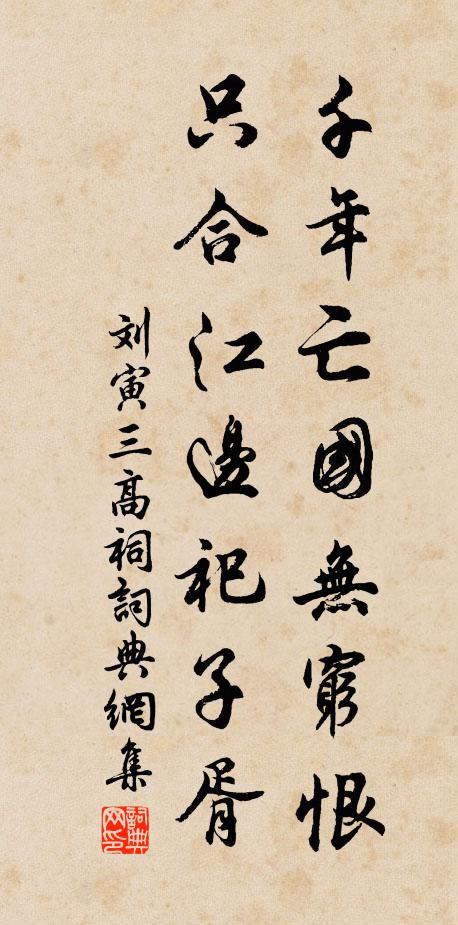 千年亡國無窮恨
只合江邊祀子胥
刘寅三高祠詞典網集
詞典网印